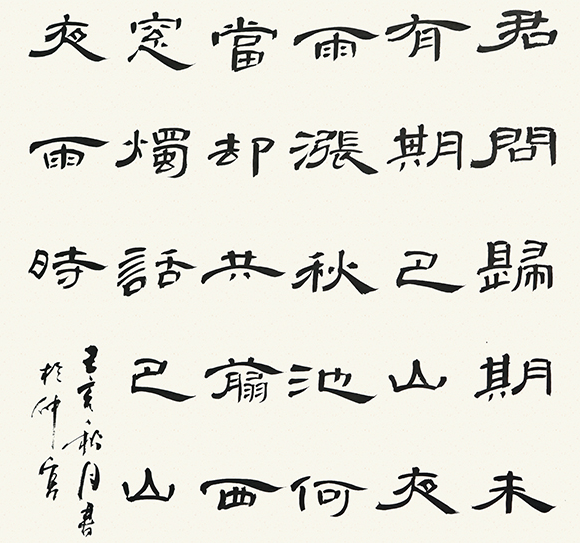 君問歸期未
有期巴山夜
雨漲秋池何
當却共翦西
窓燭話巴山
夜雨時
亥秋月書
於仲